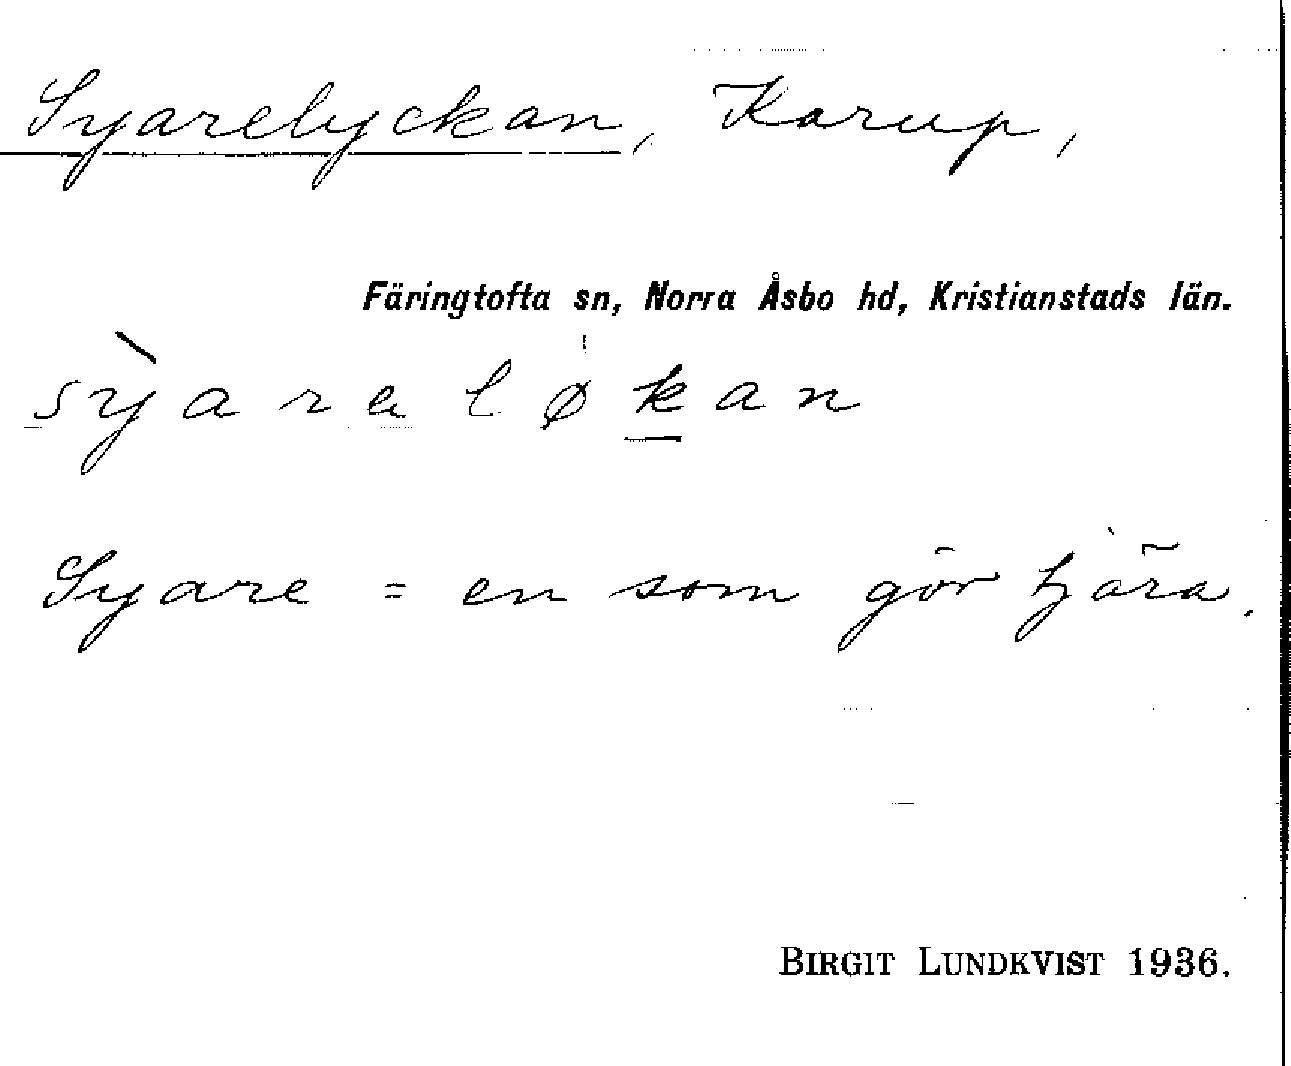 Syarelyckan, Karup,
Färingtofta sn, Norra Åsbo hd, Kristianstads län.
sỳaraløkan
Syare = en som gör tjära.
BIRGIT LUNDKVIST 1936.